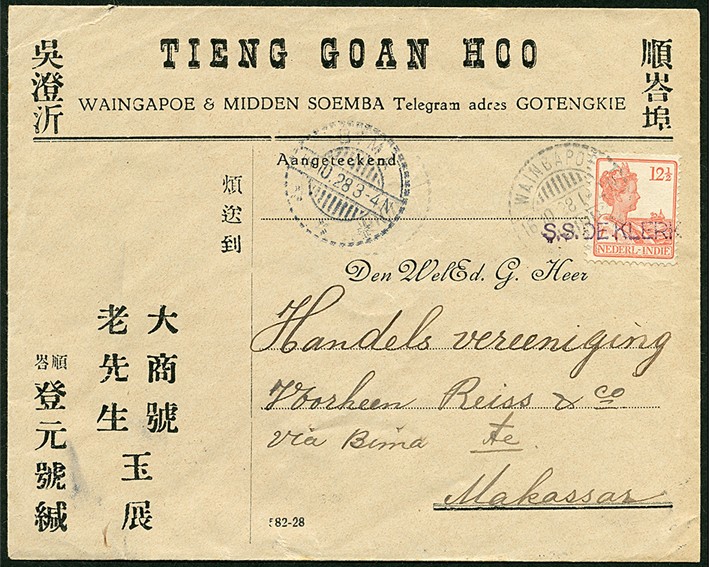 TIENG GOAN HOO
吳澄沂
順峇埠
WAINGAPOE & MIDDEN SOEMBA Telegram adres GOTENGKIE
Aangeteekend
10.28 3-4N
WAINGAPOE
12½
NEDERL-INDIE
S.S. DE KLERK
煩送到
Den WelEd. G. Heer
Handels vereeniging
Voorheen Reiss & co
via Bima te
Makassar
大商號
老先生
玉展
順峇
登元號緘
582-28